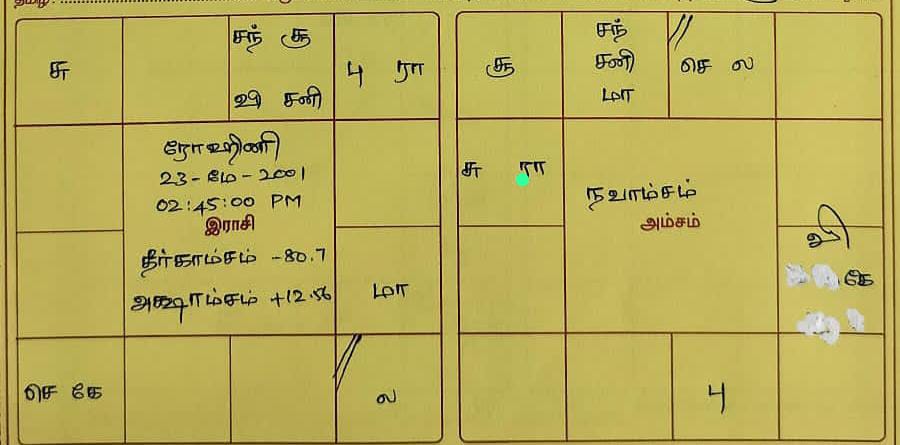 சந் சூ
சு
பு ரா
வி சனி
ரோஹிணி
23 - மே - 2001
02:45:00 PM
இராசி
தீர்காம்சம் -80.7
அக்ஷாம்சம் +12.56
மா
செ கே
ல
சூ
சந்
சனி
மா
செ ல
சு ரா
நவாம்சம்
அம்சம்
வி
கே
பு